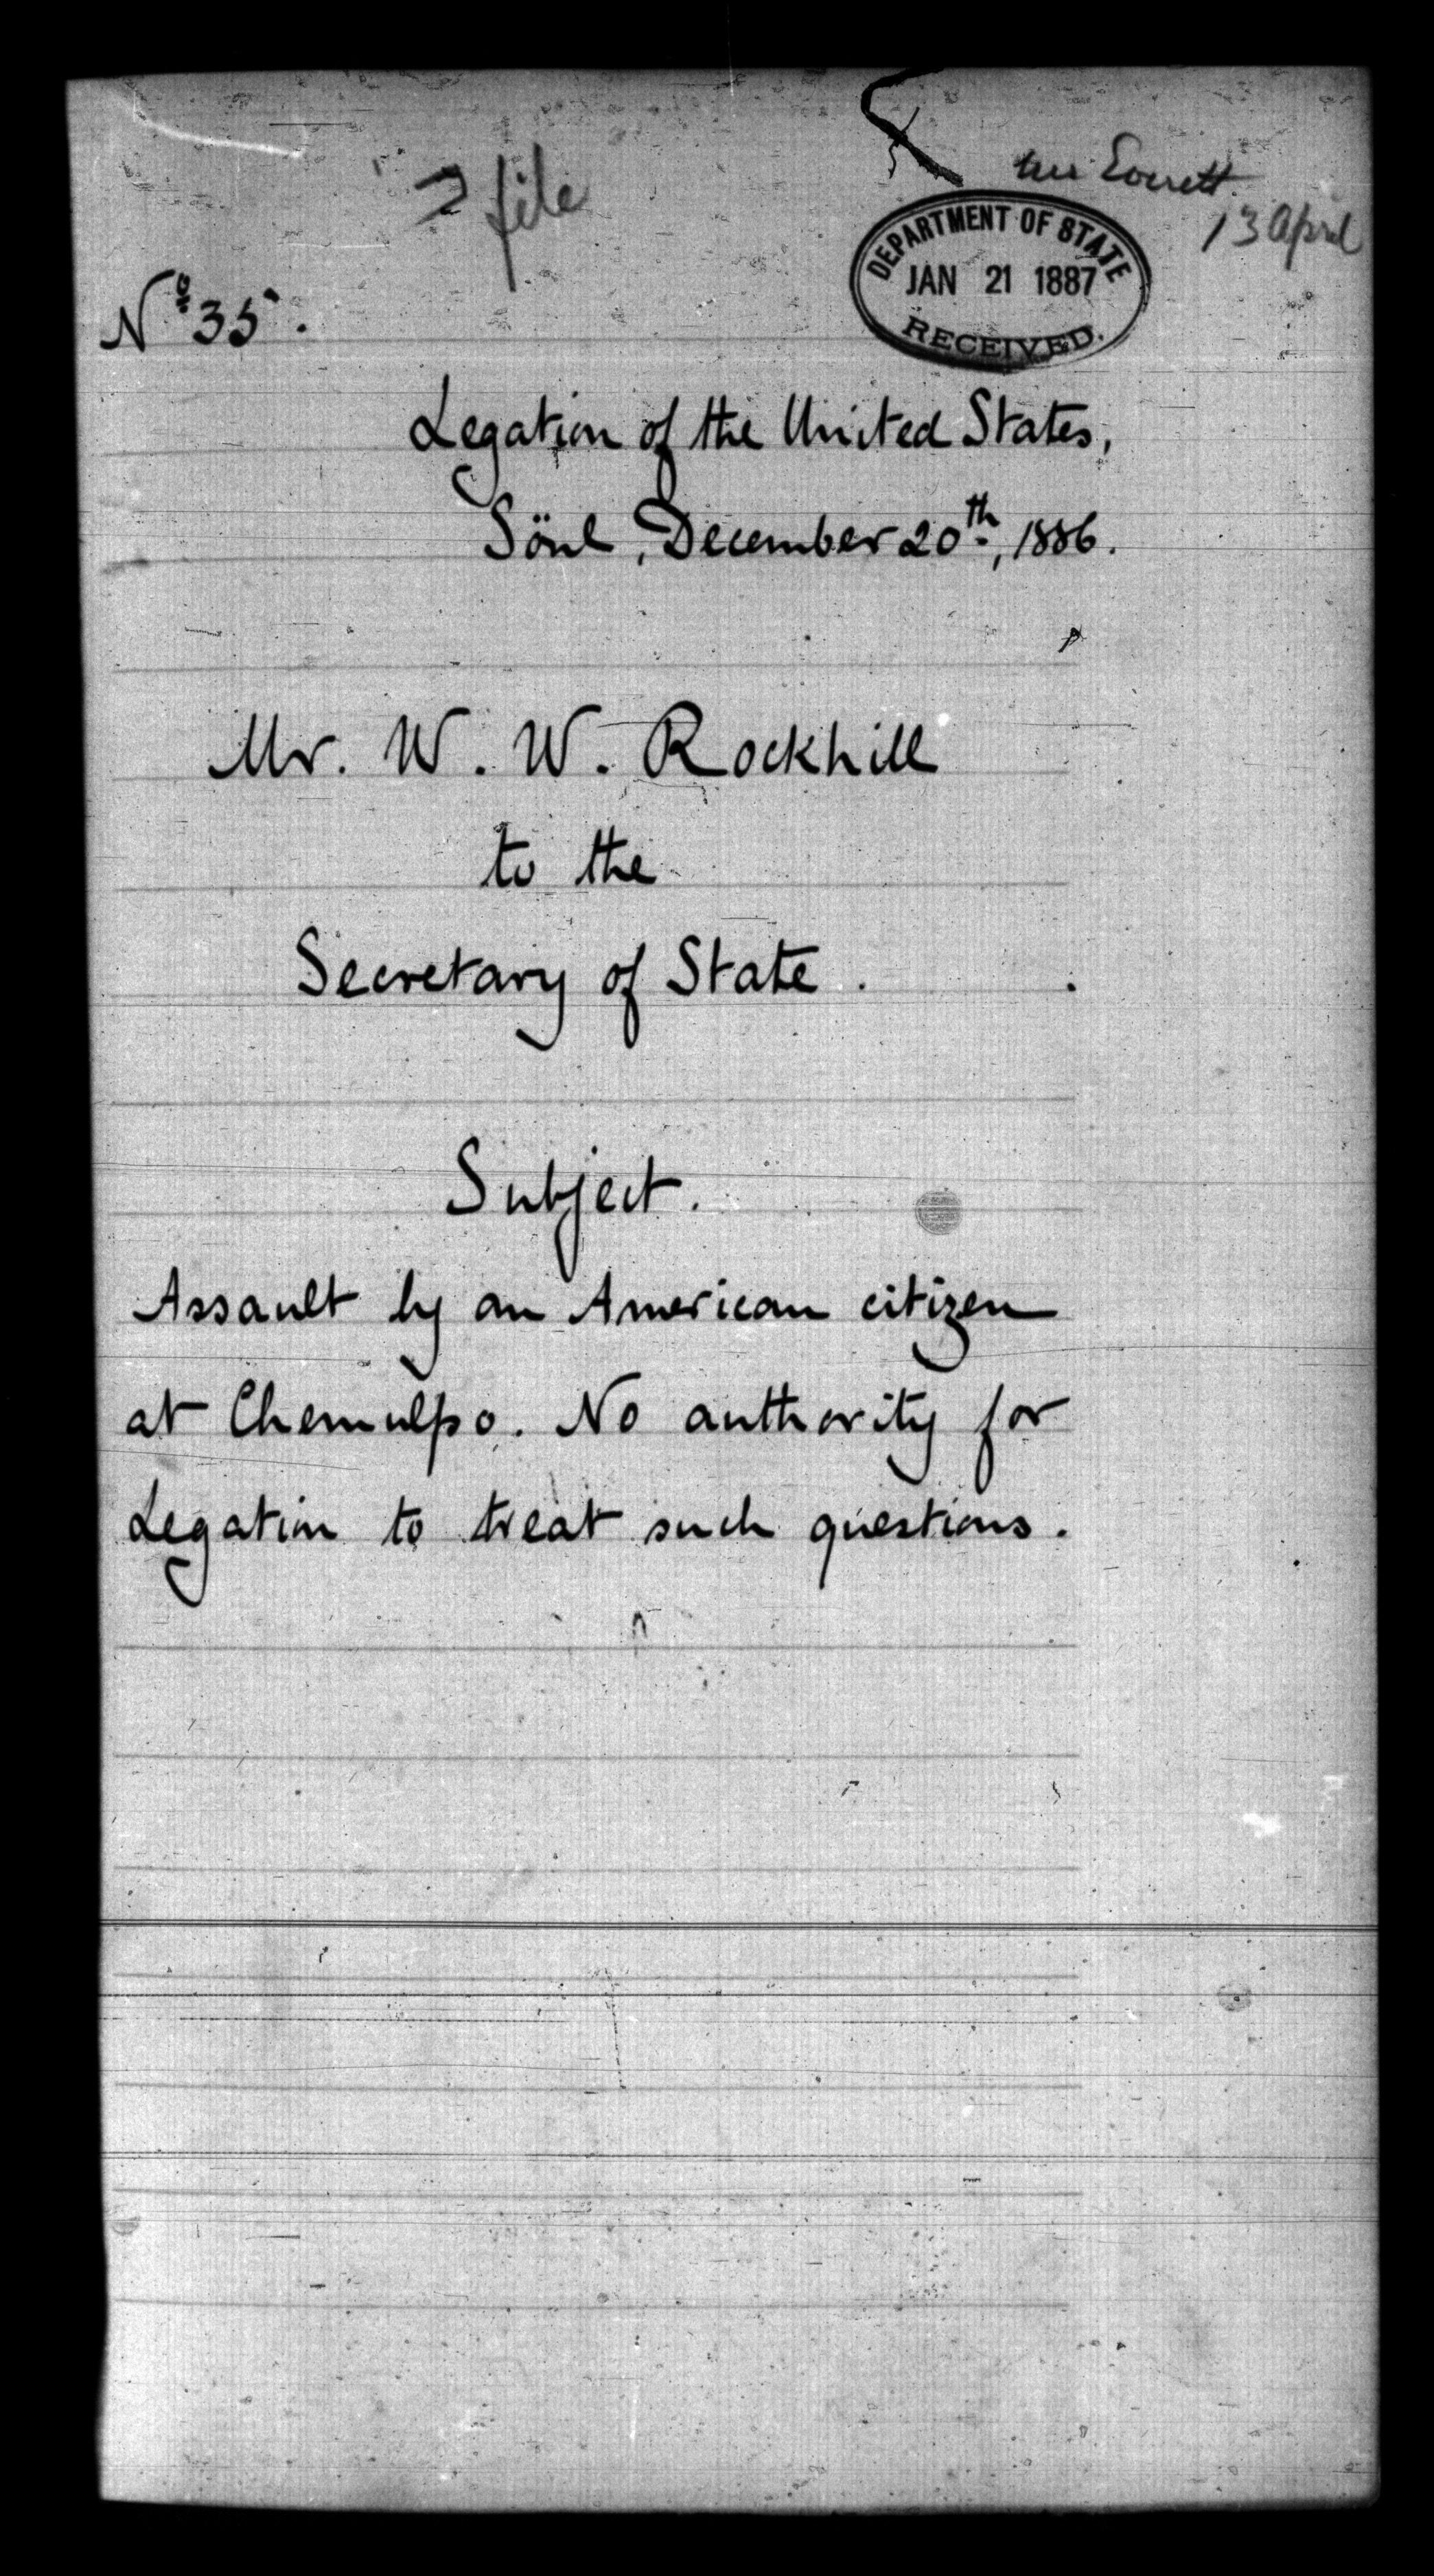 file
Mr Everett
13 April
DEPARTMENT OF STATE
JAN 21 1887
RECEIVED.
Nº 35.
Legation of the United States,
Söul, December 20th, 1886.
Mr. W. W. Rockhill
to the
Secretary of State.
Subject.
Assault by an American citizen
at Chemulpo. No authority for
Legation to treat such questions.